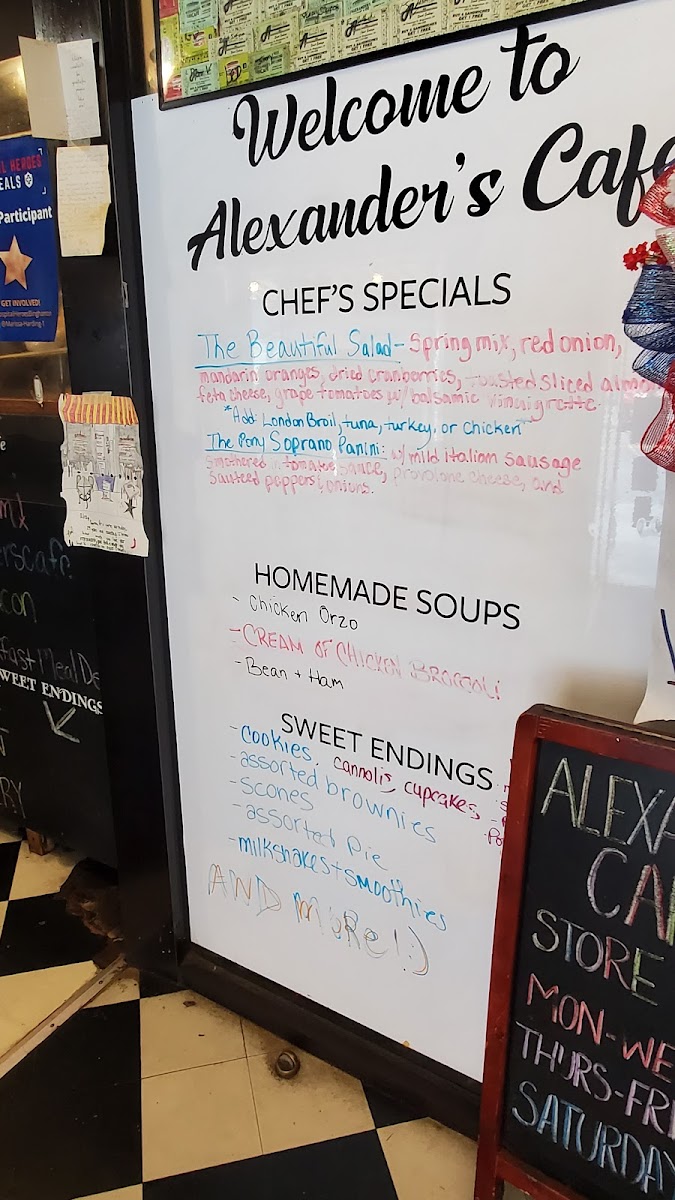 Welcome to
Alexander's Cafe
CHEF'S SPECIALS
The Beautiful Salad - Spring mix, red onion,
mandarin oranges, dried cranberries, toasted sliced almon
feta cheese, grape tomatoes w/ balsamic vinaigrette.
*Add: London Broil, tuna, turkey, or chicken*
The Pony Soprano Panini: w/ mild italian sausage
smothered in tomatoe sauce, provolone cheese, and
sauteed peppers & onions.
HOMEMADE SOUPS
- Chicken Orzo
- CREAM OF CHICKEN BROCCOLI
- Bean + Ham
SWEET ENDINGS
- cookies, cannolis, cupcakes
- assorted brownies
- scones
- assorted pie
- milkshakes + smoothies
AND MORE! :)
ALEXA
CA
STORE
MON-WE
THURS-FRI
SATURDAY
HEROES
EALS
Participant
GET INVOLVED!
erscafe
con
fast Meal De
SWEET ENDINGS
RY